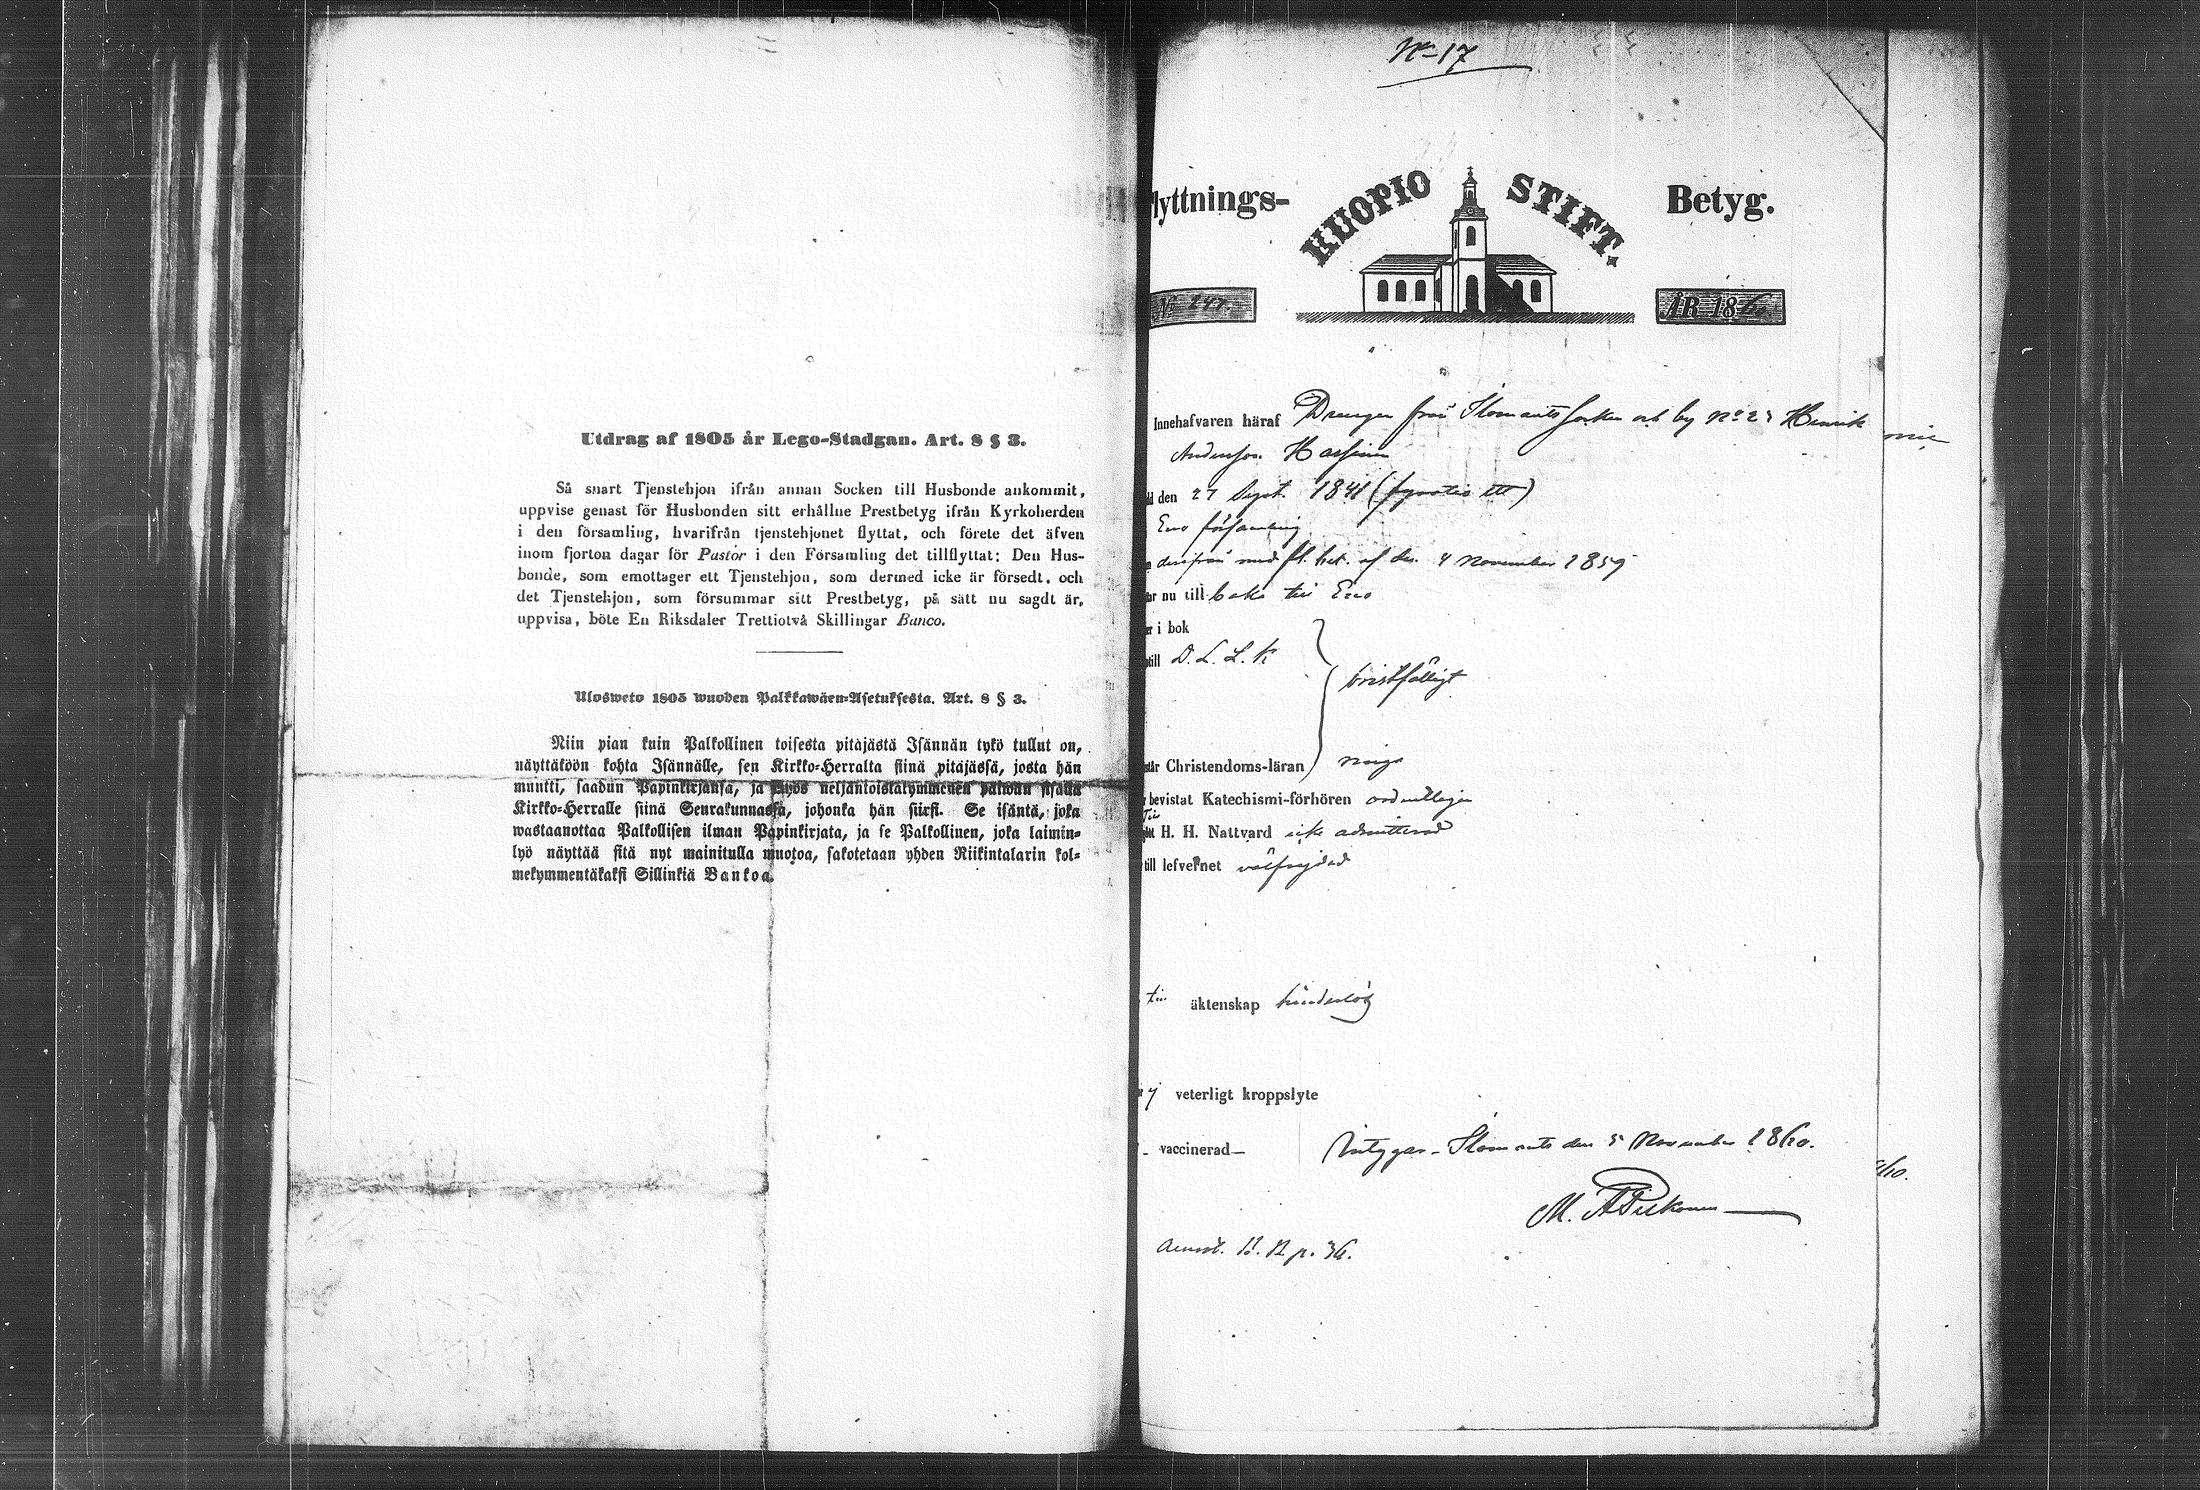 Utdrag af 1805 år Lego-Stadgan. Art. 8 § 3.
Så snart Tjenstehjon ifrån annan Socken till Husbonde ankommit,
uppvise genast för Husbonden sitt erhållne Prestbetyg ifrån Kyrkoherden
i den församling, hvarifrån tjenstehjonet flyttat, och förete det äfven
inom fjorton dagar för Pastor i den Församling det tillflyttat: Den Hus-
bonde, som emottager ett Tjenstehjon, som dermed icke är försedt, och
det Tjenstehjon, som försummar sitt Prestbetyg, på sätt nu sagdt är,
uppvisa, böte En Riksdaler Trettiotvå Skillingar Banco.
Ulosweto 1805 wuoden Palkkawäen-Asetuksesta. Art. 8 § 3.
Niin pian kuin Palkollinen toisesta pitäjästä Isännän tykö tullut on,
näyttäköön kohta Isännälle, sen Kirkko-Herralta siinä pitäjässä, josta hän
muutti, saadun Papinkirjansa, ja myös neljäntoistakymmenen päiwän sisällä
Kirkko-Herralle siinä Seurakunnassa, johonka hän siirsi. Se isäntä, joka
wastaanottaa Palkollisen ilman Papinkirjata, ja se Palkollinen, joka laimin-
lyö näyttää sitä nyt mainitulla muotoa, sakotetaan yhden Riikintalarin kol-
mekymmentäkaksi Sillinkiä Bankoa.
No 17
lyttnings- KUOPIO STIFT. Betyg.
No ÅR 1860
Innehafvaren häraf Drengen från Ilomants socken och by No 2 Henrik
Andersson Hassinen
den 27 Sept. 1841 (fyratio ett)
Eno församling
derifrån med fl. bet. af den 4 November 1859
nu till baka till Eno
i bok
till D. L. L. K
bristfälligt
Christendoms-läran ringa
bevistat Katechismi-förhören ordentligen
Till
H. H. Nattvard icke admitterad
till lefvernet välfrejdad
till äktenskap hinderlös
ej veterligt kroppslyte
vaccinerad
Intygar Ilomants den 5 November 1860.
M. A Piekonen
p. 36.